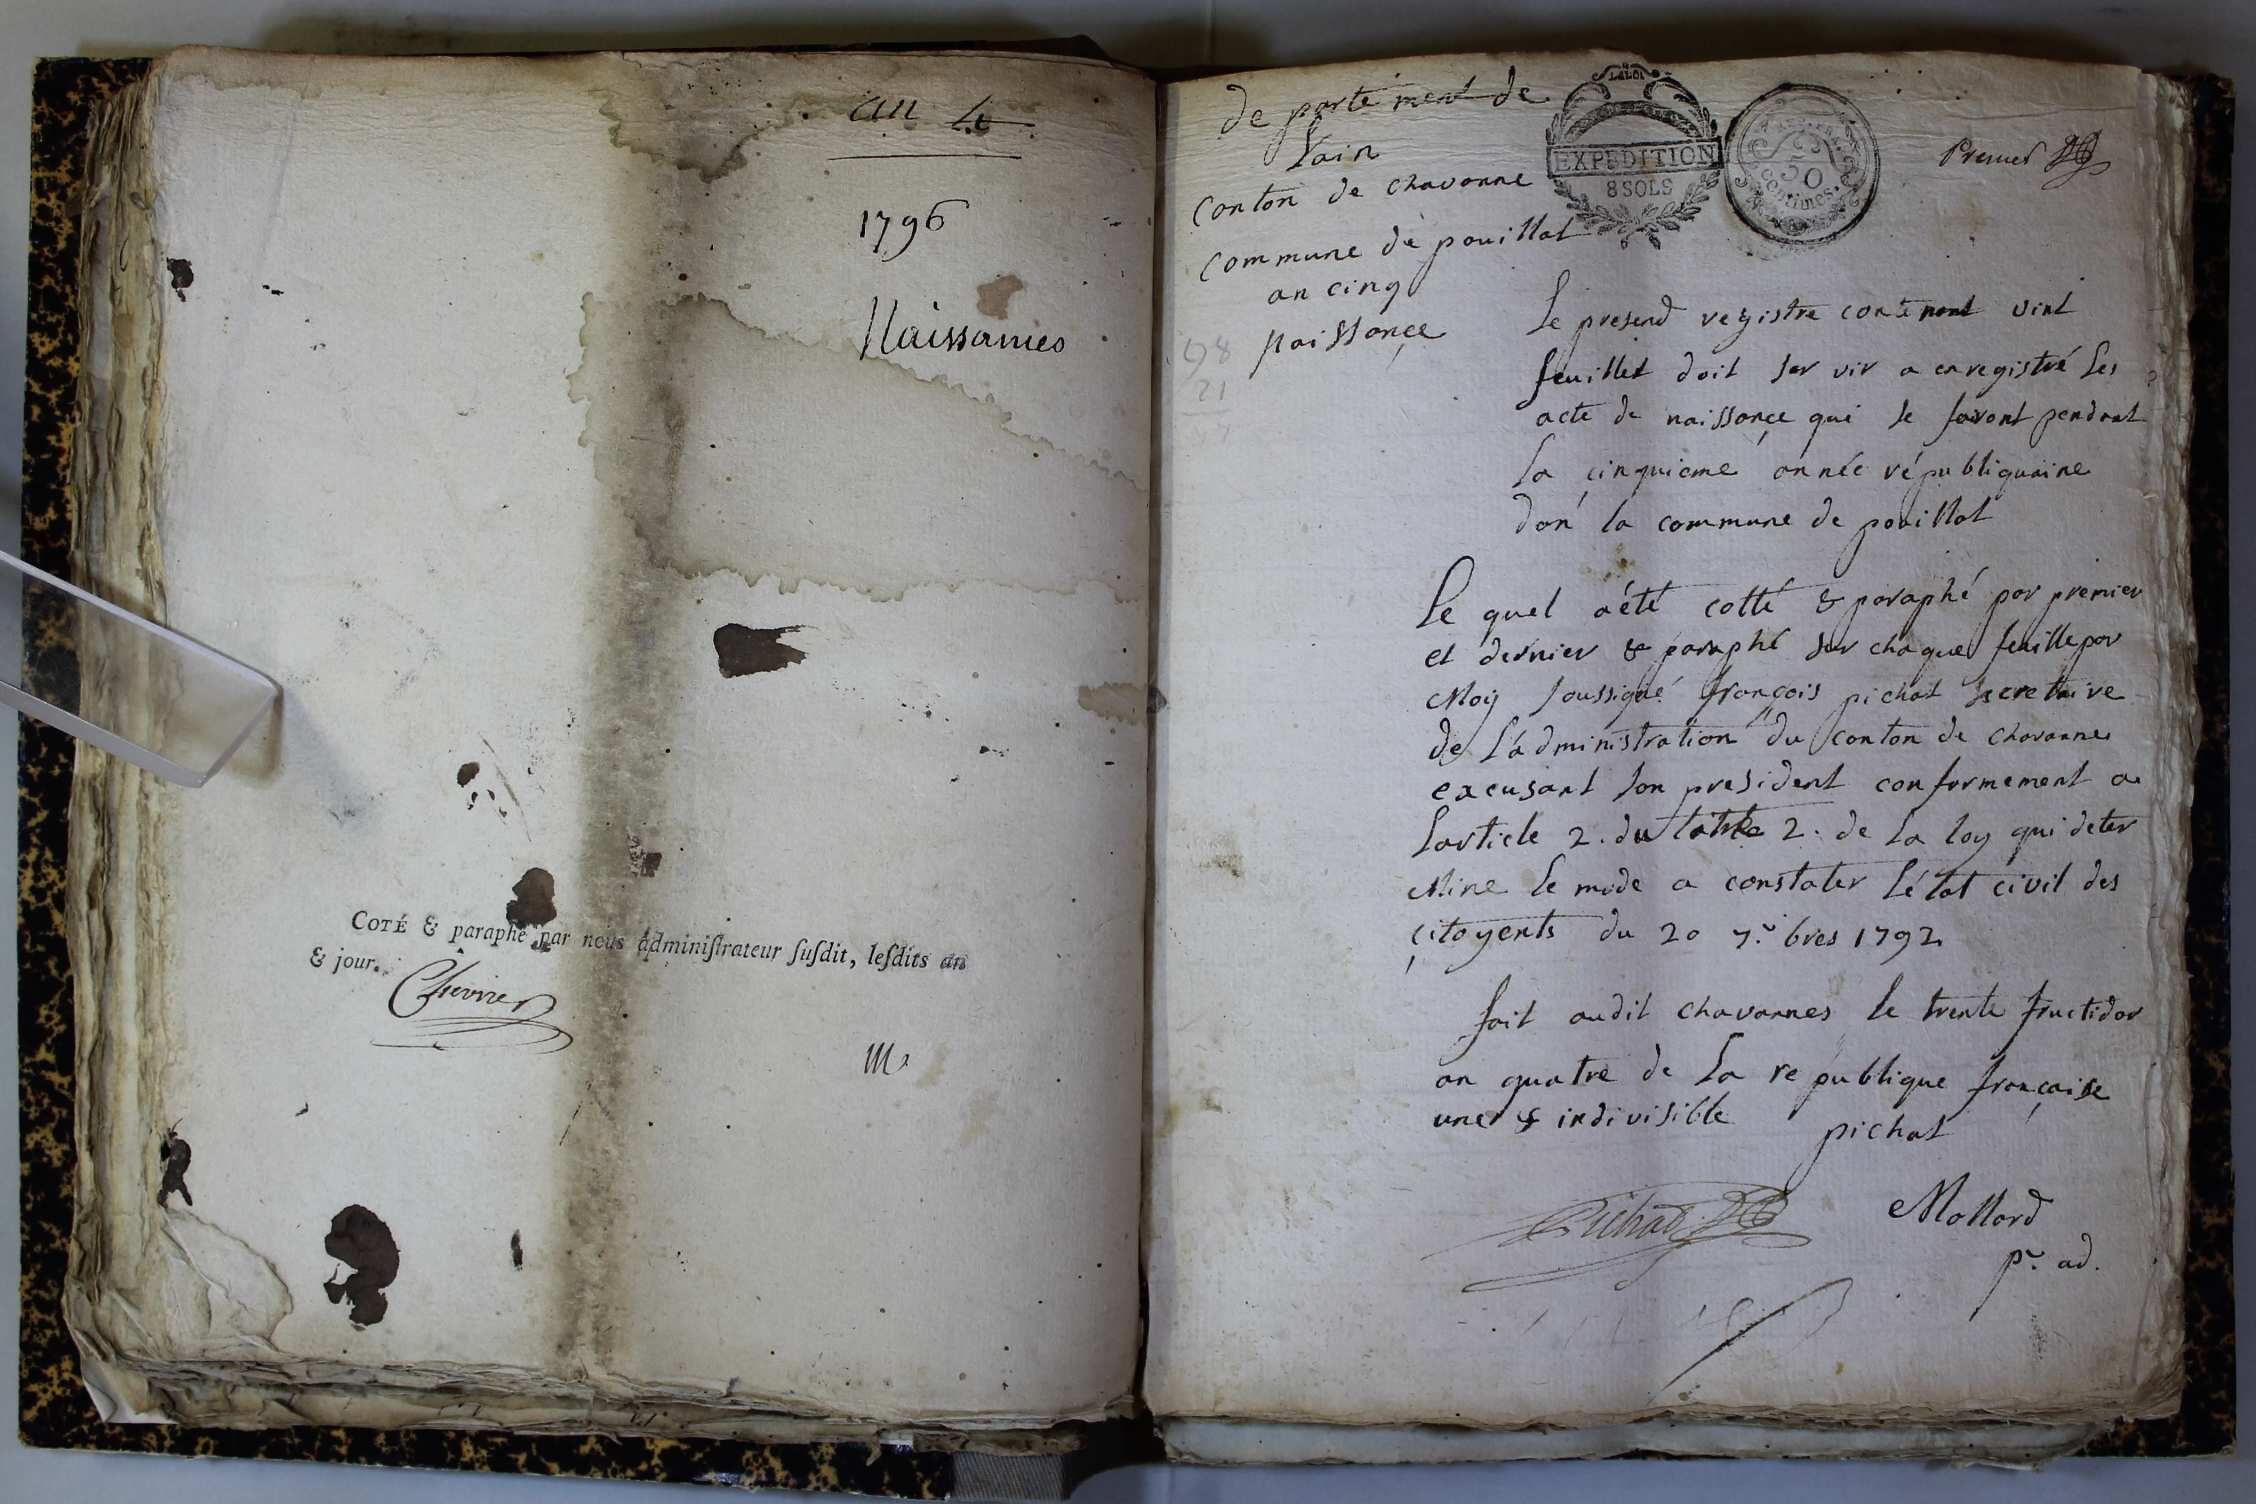 an 4
1796
Naissances
COTÉ & paraphé par nous administrateur susdit, lesdits an
& jour.
Chevrier
de parte ment de
Lain
Canton de chavanne
commune de pouillat
an cinq
naissançe
LALOI
EXPEDITION
8 SOLS
50
centimes.
Premier
Le presend registre contenant vint
feuillet doit ser vir a enregistré les
acte de naissançe qui se feront pendant
la çinquieme année républiquaine
dan la commune de pouillat
Le quel a été cotté & paraphé par premier
et dernier & paraphé sur chaque feuille par
Moy soussigné françois pichat secretaire
de L'administration du canton de chavannes
excusant son president conformement a
Larticle 2. du titre 2. de la loy qui deter
Mine le mode a constater L'état civil des
çitoyents du 20 7.bres 1792
fait audit chavannes le trente fructidor
an quatre de La république françaisse
une & indivisible
pichat
Pichat
Mollard
pr. ad.
98
21